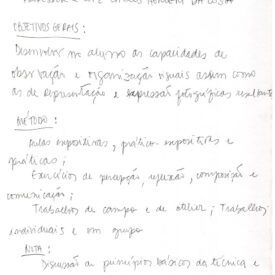 OBJETIVOS GERAIS:
Desenvolver no aluno as capacidades de
observação e organização visuais assim como
as de representação e expressão fotográficas
MÉTODO:
Aulas expositivas, prático-expositivas e
práticas;
Exercícios de percepção, reflexão, composição e
comunicação;
Trabalhos de campo e de atelier; Trabalhos
individuais e em grupo
NOTA:
Discussão de princípios básicos da técnica e